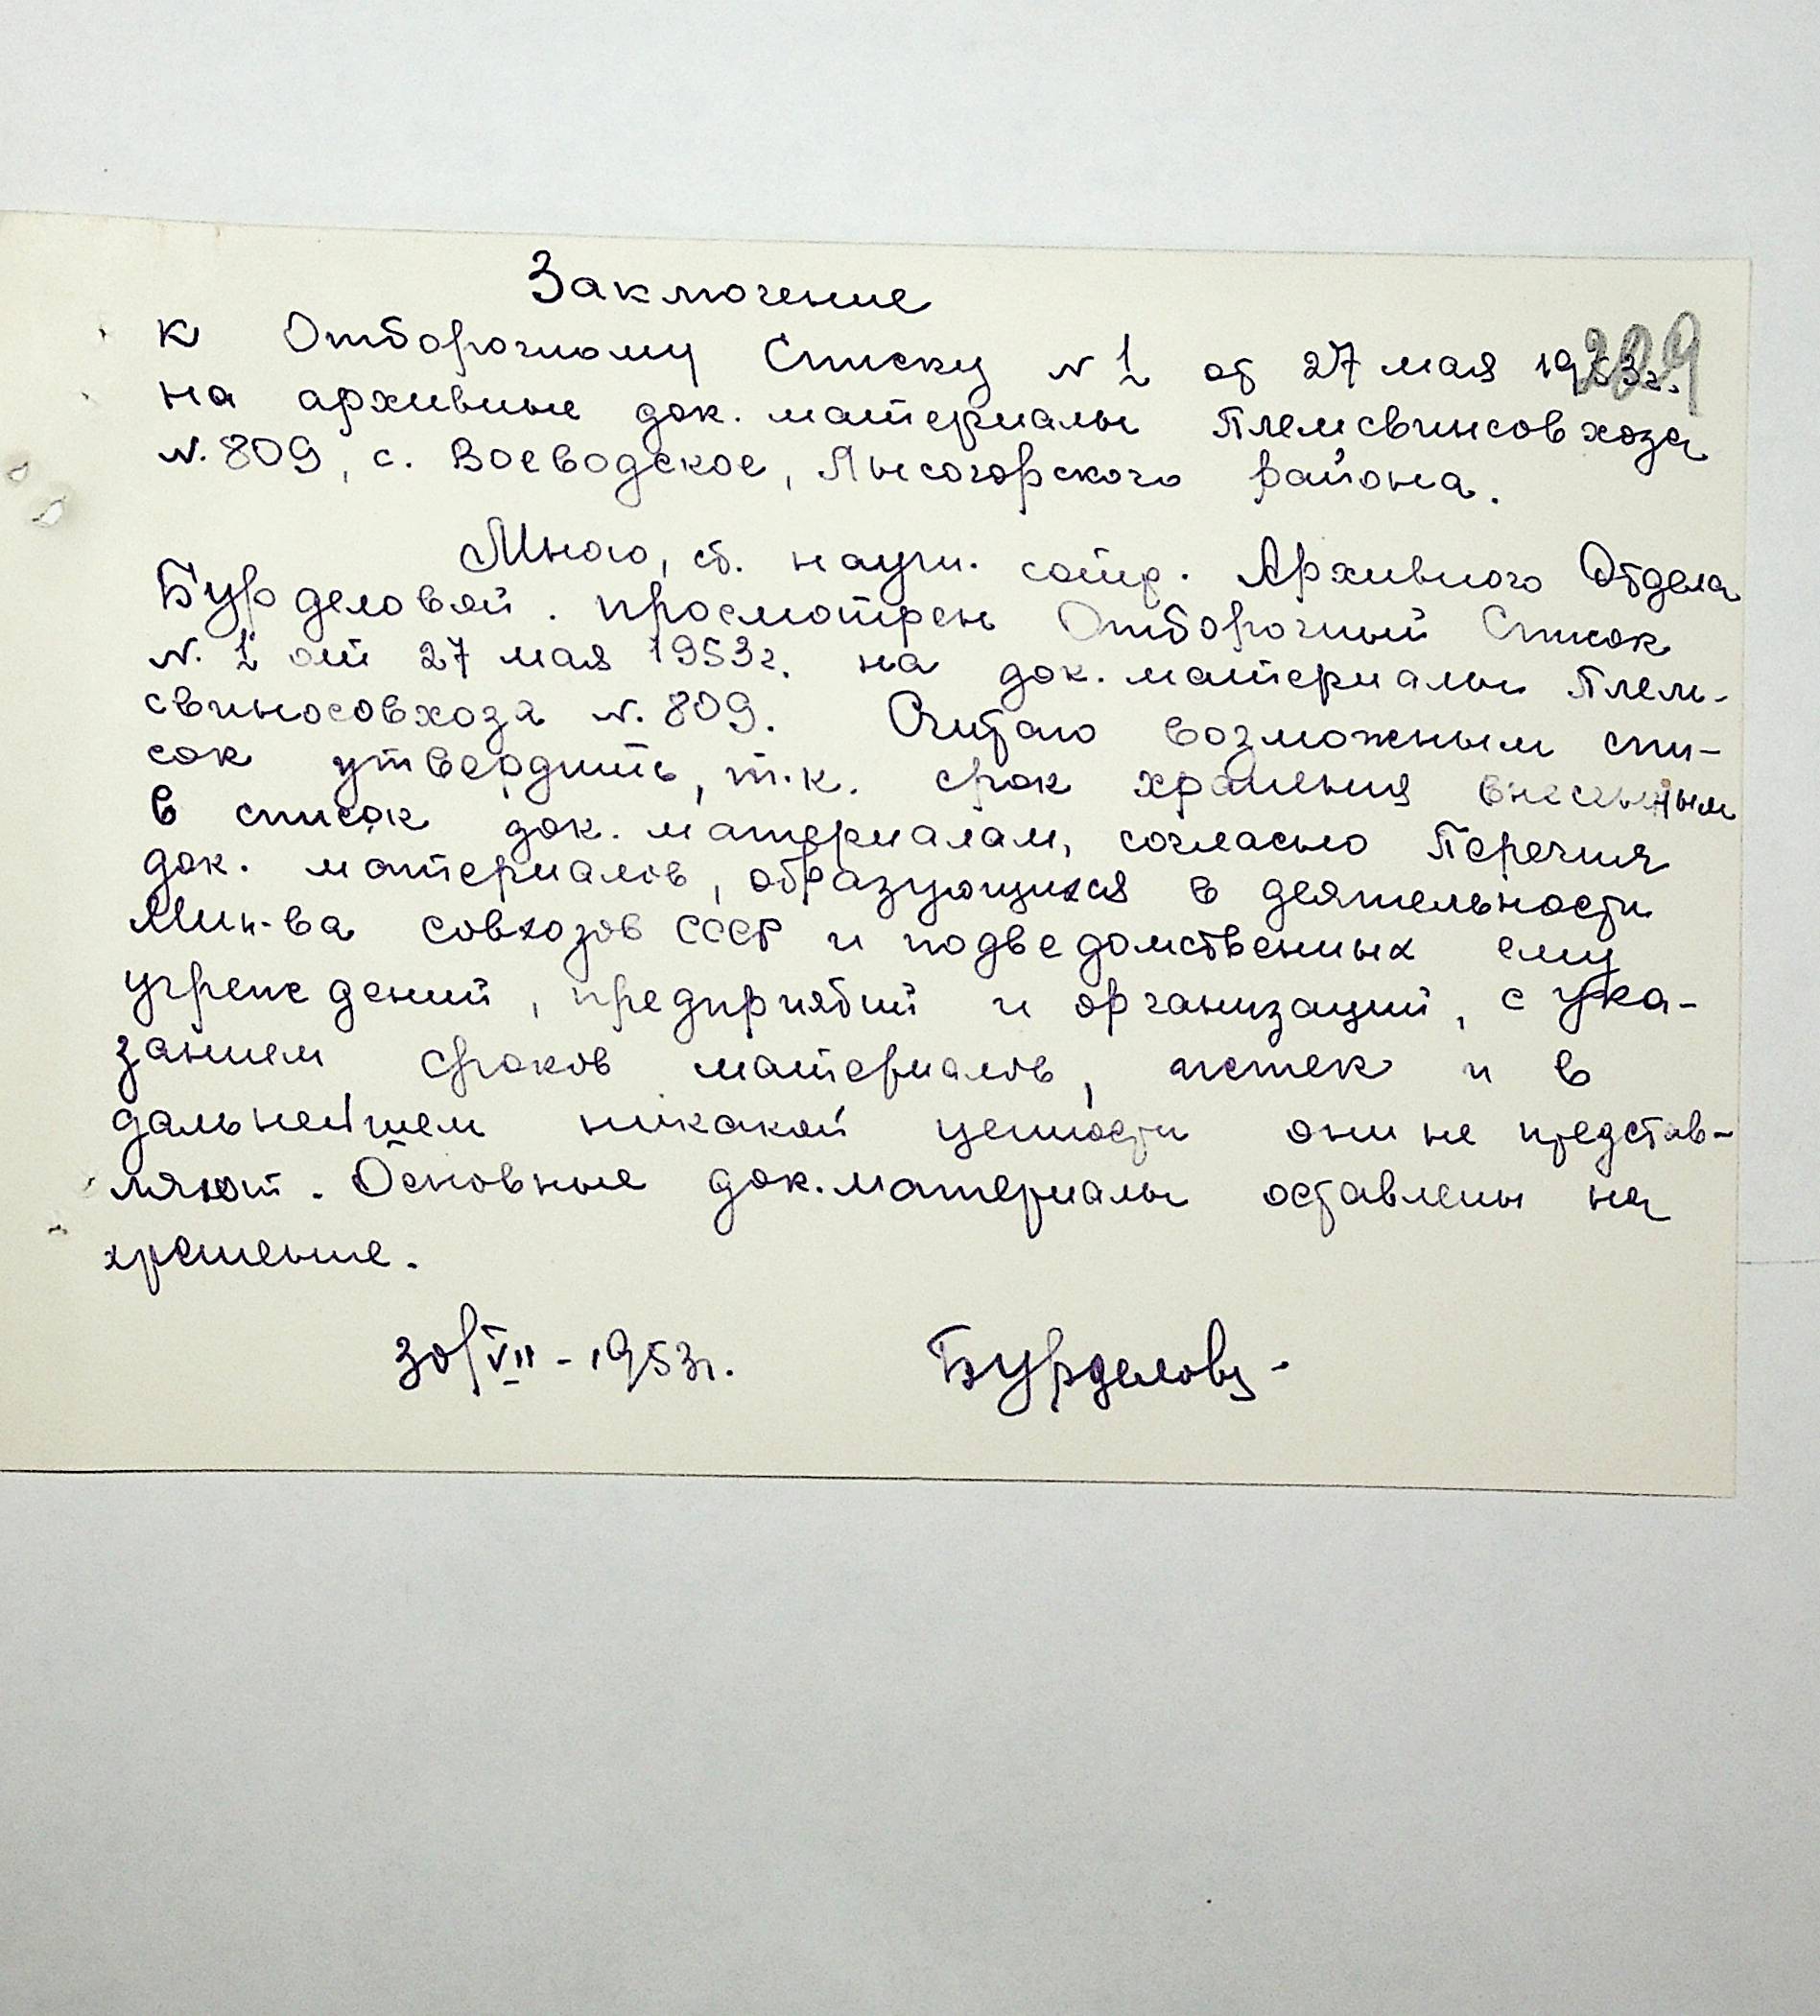 Заключение
к Отборочному Списку N 1 от 27 мая 1953г.
289
на архивные док. материалы Племсвинсовхоза
N. 809, с. Воеводское, Лысогорского района.
Мною, ст. научн. сотр. Архивного Отдела
Бурделовой. просмотрен Отборочный Список
N. 1 от 27 мая 1953г. на док. материалы Плем-
свиносовхоза N. 809. Считаю возможным спи-
сок утвердить, т.к. срок хранения внесенным
в список док. материалам, согласно Перечня
док. материалов, образующихся в деятельности
Мин-ва совхозов СССР и подведомственных ему
учреждений, предприятий и организаций, с ука-
занием сроков материалов, истек и в
дальнейшем никакой ценности они не представ-
ляют. Основные док. материалы оставлены на
хранение.
30/VII - 1953г. Бурделова